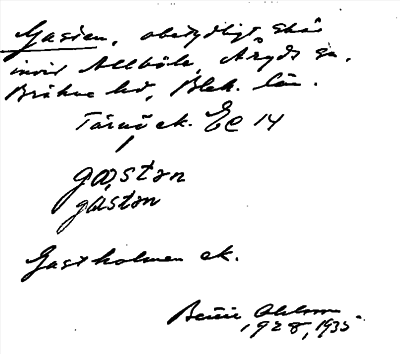 Gasten, obetydligt skär
invid Allböle, Aryds sn,
Bräkne hd, Blek. län.
Tärnö ek. Ec 14
gastən
gastən
Gastholmen ek.
Bertil Ohlsson
1928, 1935.